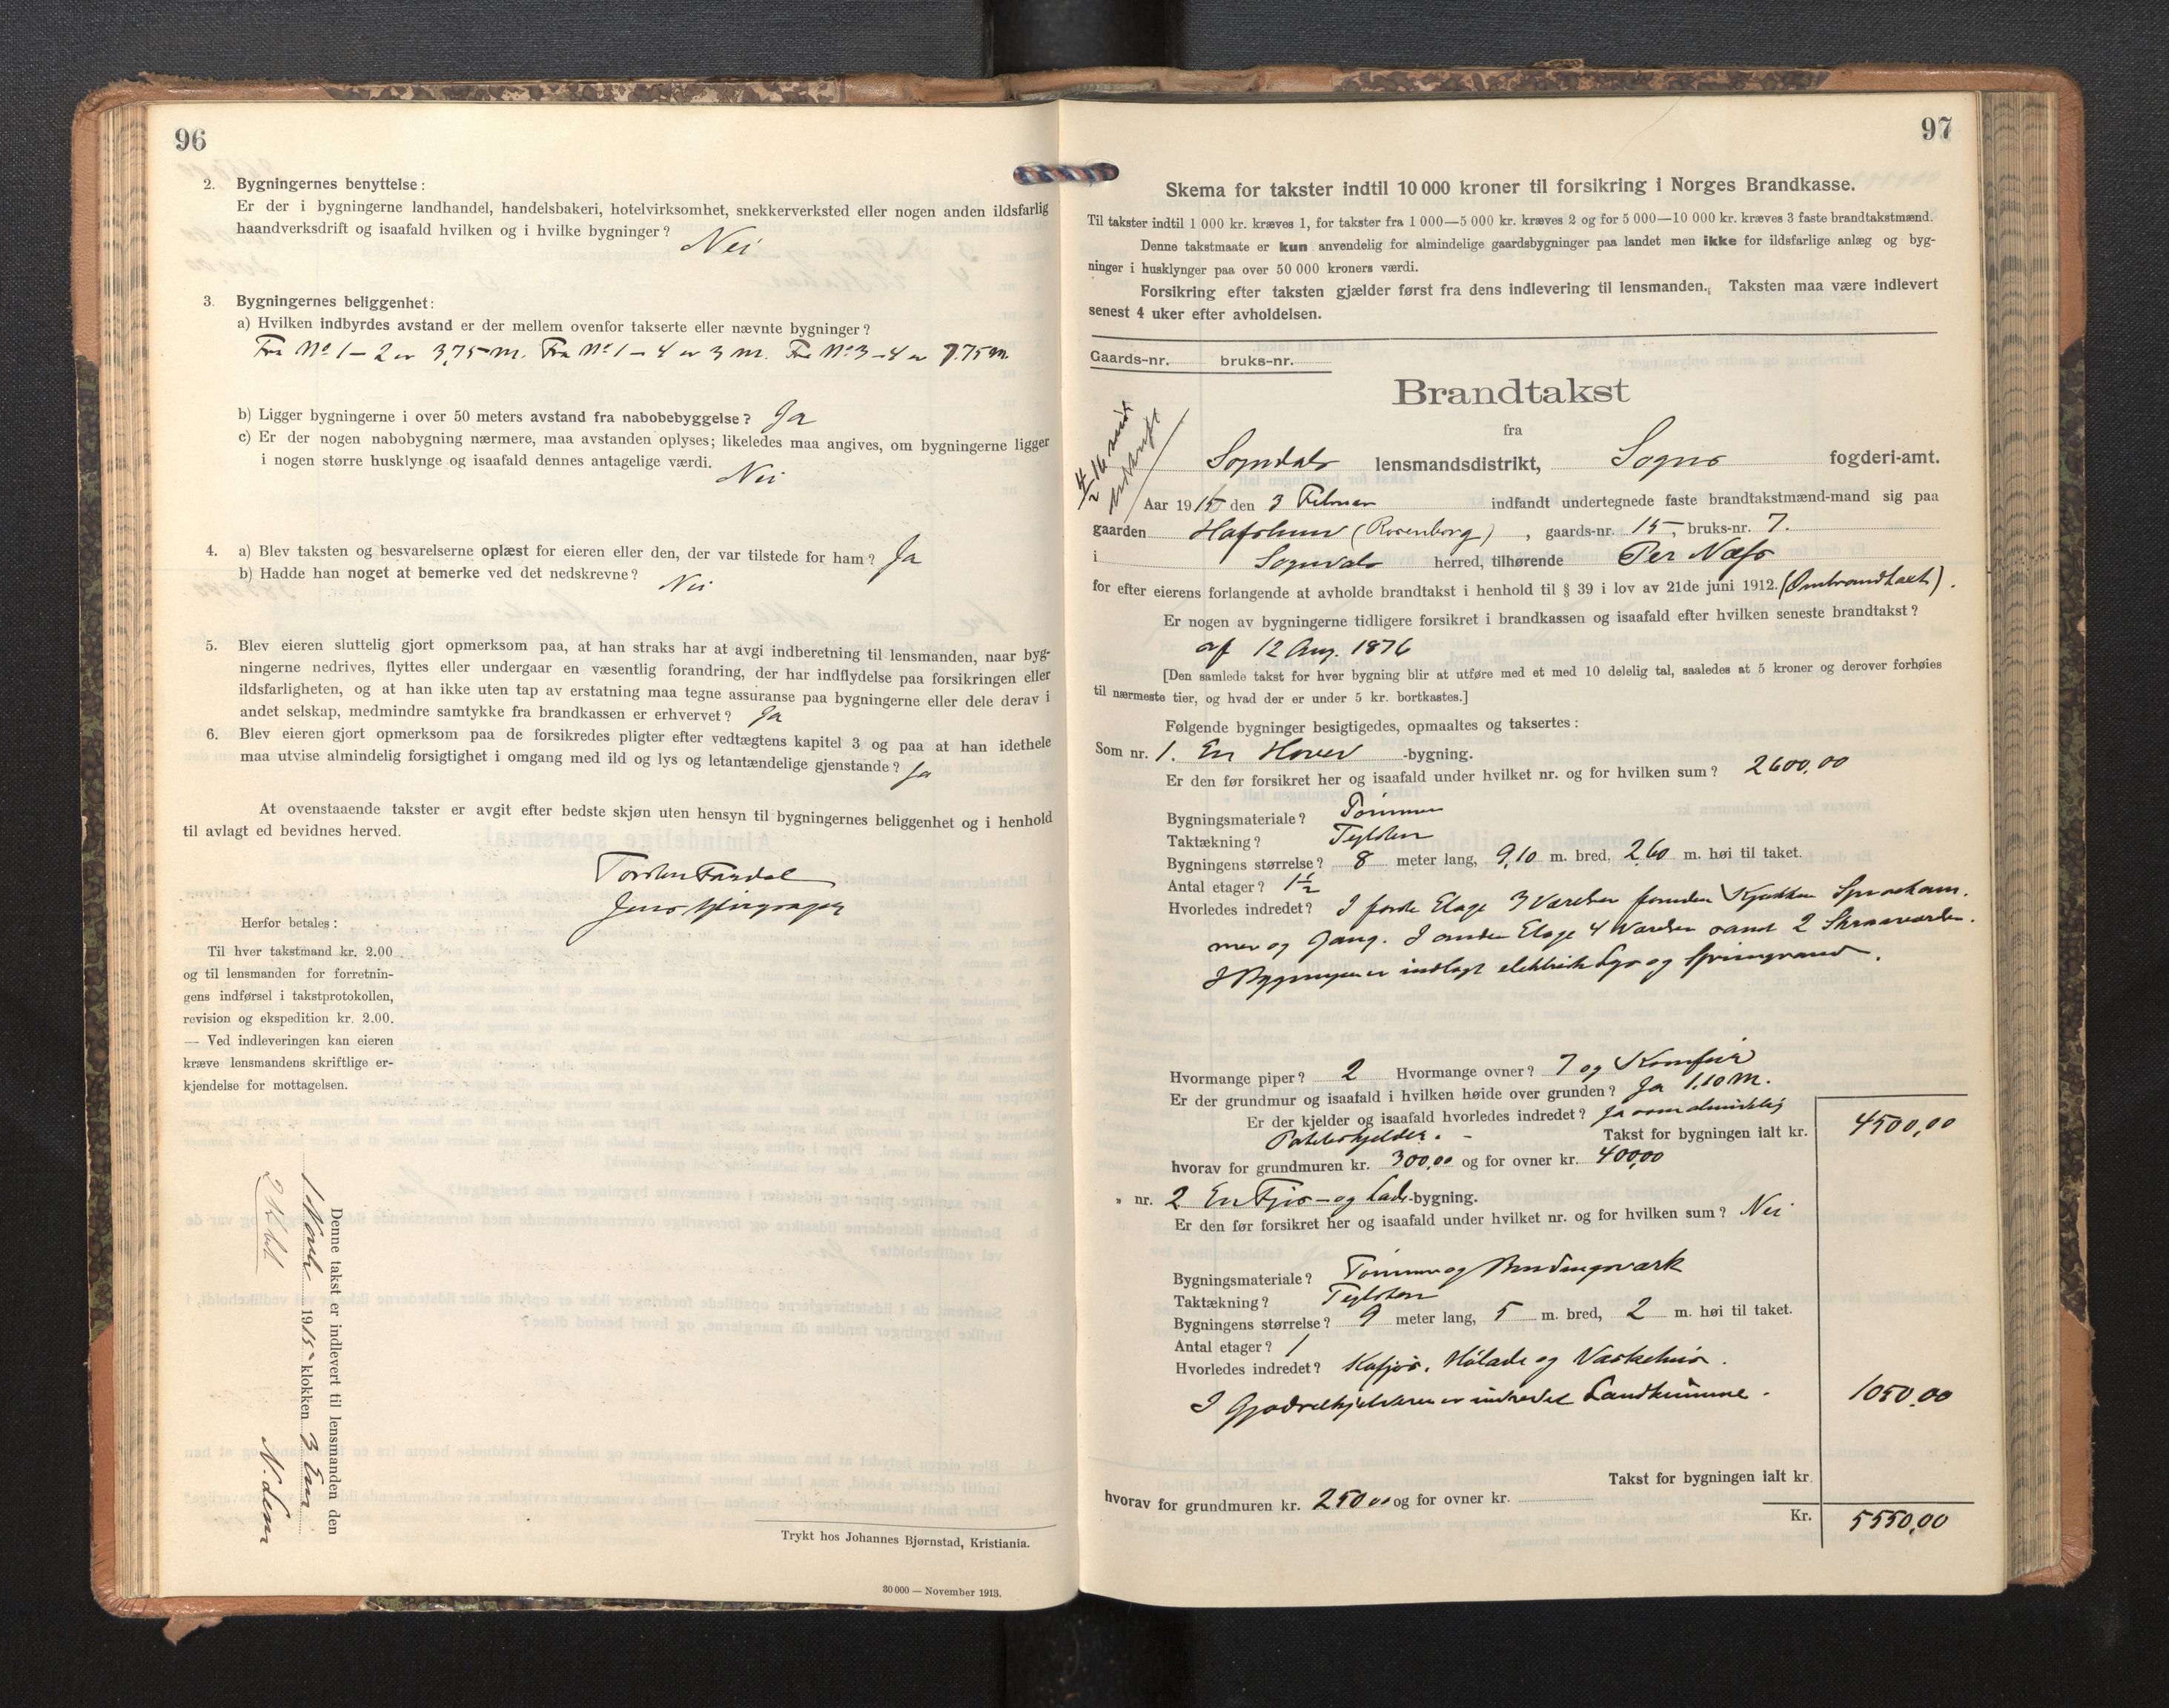 96
2. Bygningernes benyttelse:
Er der i bygningerne landhandel, handelsbakeri, hotelvirksomhet, snekkerverksted eller nogen anden ildsfarlig
haandverksdrift og isaafald hvilken og i hvilke bygninger? Nei
3. Bygningernes beliggenhet:
a) Hvilken indbyrdes avstand er der mellem ovenfor takserte eller nævnte bygninger?
Fra No 1-2 er 3,75 m. Fra No 1-4 er 3 m. Fra No 3-4 er 7.75 m.
b) Ligger bygningerne i over 50 meters avstand fra nabobebyggelse? Ja
c) Er der nogen nabobygning nærmere, maa avstanden oplyses; likeledes maa angives, om bygningerne ligger
i nogen større husklynge og isaafald dennes antagelige værdi. Nei
4. a) Blev taksten og besvarelserne oplæst for eieren eller den, der var tilstede for ham? Ja
b) Hadde han noget at bemerke ved det nedskrevne? Nei
5. Blev eieren sluttelig gjort opmerksom paa, at han straks har at avgi indberetning til lensmanden, naar byg-
ningerne nedrives, flyttes eller undergaar en væsentlig forandring, der har indflydelse paa forsikringen eller
ildsfarligheten, og at han ikke uten tap av erstatning maa tegne assuranse paa bygningerne eller dele derav i
andet selskap, medmindre samtykke fra brandkassen er erhvervet? Ja
6. Blev eieren gjort opmerksom paa de forsikredes pligter efter vedtægtens kapitel 3 og paa at han idethele
maa utvise almindelig forsigtighet i omgang med ild og lys og letantændelige gjenstande? Ja
At ovenstaaende takster er avgit efter bedste skjøn uten hensyn til bygningernes beliggenhet og i henhold
til avlagt ed bevidnes herved.
Jens
Herfor betales:
Til hver takstmand kr. 2.00
og til lensmanden for forretnin-
gens indførsel i takstprotokollen,
revision og ekspedition kr. 2.00.
— Ved indleveringen kan eieren
kræve lensmandens skriftlige er-
kjendelse for mottagelsen.
Denne takst er indlevert til lensmanden den
1915 klokken 3 Em
Trykt hos Johannes Bjørnstad, Kristiania.
30 000 — November 1913.
97
Skema for takster indtil 10 000 kroner til forsikring i Norges Brandkasse.
Til takster indtil 1 000 kr. kræves 1, for takster fra 1 000—5 000 kr. kræves 2 og for 5 000—10 000 kr. kræves 3 faste brandtakstmænd.
Denne takstmaate er kun anvendelig for almindelige gaardsbygninger paa landet men ikke for ildsfarlige anlæg og byg-
ninger i husklynger paa over 50 000 kroners værdi.
Forsikring efter taksten gjælder først fra dens indlevering til lensmanden. Taksten maa være indlevert
senest 4 uker efter avholdelsen.
Gaards-nr. bruks-nr.
Brandtakst
fra
Sogndals lensmandsdistrikt, Sogns fogderi-amt.
Aar 1915 den 3 Februar indfandt undertegnede faste brandtakstmænd-mand sig paa
gaarden Hofslund (Rosenborg), gaards-nr. 15, bruks-nr. 7.
i Sogndals herred, tilhørende Per Næss
for efter eierens forlangende at avholde brandtakst i henhold til § 39 i lov av 21de juni 1912. (Ombrandtakst).
Er nogen av bygningerne tidligere forsikret i brandkassen og isaafald efter hvilken seneste brandtakst?
af 12 Aug. 1876
[Den samlede takst for hver bygning blir at utføre med et med 10 delelig tal, saaledes at 5 kroner og derover forhøies
til nærmeste tier, og hvad der er under 5 kr. bortkastes.]
Følgende bygninger besigtigedes, opmaaltes og taksertes:
Som nr. 1. En Hoved -bygning.
Er den før forsikret her og isaafald under hvilket nr. og for hvilken sum? 2600,00
Bygningsmateriale? Tømmer
Taktækning? Teglsten
Bygningens størrelse? 8 meter lang, 9,10 m. bred, 2,60 m. høi til taket.
Antal etager? 1½
Hvorledes indredet? I første Etage 3 Værelser foruden Kjøkken Spisekam-
mer og Gang. I anden Etage 4 Værelser samt 2 Skraaværelser.
I Bygningen er indlagt elektrisk Lys og Springvand.
Hvormange piper? 2 Hvormange ovner? 7 og Komfur
Er der grundmur og isaafald i hvilken høide over grunden? Ja 1.10 m.
Er der kjelder og isaafald hvorledes indredet? Ja som almindelig
Potetkjelder. Takst for bygningen ialt kr. 4500,00
hvorav for grundmuren kr. 300,00 og for ovner kr. 400,00
" nr. 2 En Fjøs- og Lade-bygning.
Er den før forsikret her og isaafald under hvilket nr. og for hvilken sum? Nei
Bygningsmateriale? Tømmer og Bindingsværk
Taktækning? Teglsten
Bygningens størrelse? 9 meter lang, 5 m. bred, 2 m. høi til taket.
Antal etager? 1
Hvorledes indredet? Kufjøs, Hølade og Vaskehus.
I Gjødselkjelderen er indredet Landkumme. 1050,00
Takst for bygningen ialt kr.
hvorav for grundmuren kr. 250,00 og for ovner kr.
Kr. 5550,00